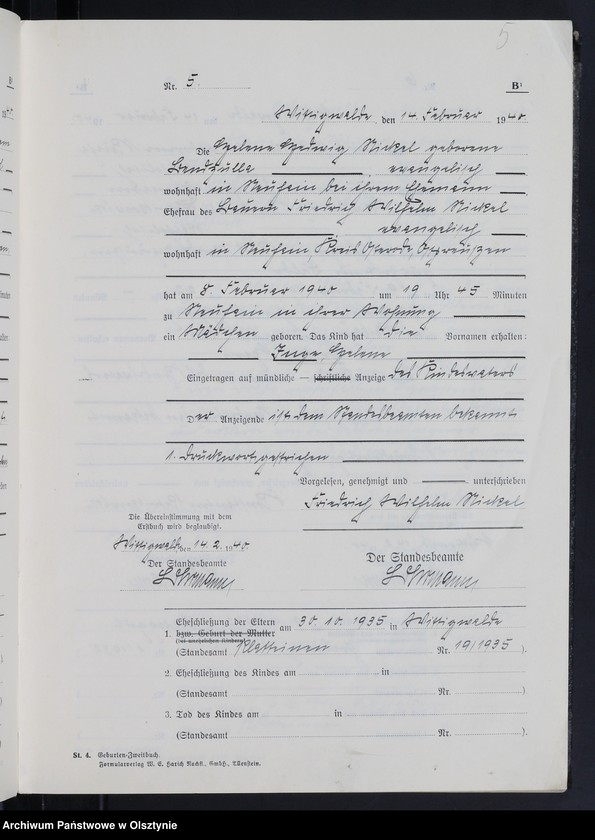 5
Nr. 5. B¹
Wittigwalde, den 14. Februar 1940
Die Helene Hedwig Nickel geborene
evangelisch
wohnhaft in Neuhain bei ihrem Ehemann
Ehefrau des Bauern Friedrich Wilhelm Nickel
evangelisch
wohnhaft in Neuhain, Kreis Osterode, Ostpreußen
hat am 8. Februar 1940 um 19 Uhr 45 Minuten
zu Neuhain in ihrer Wohnung
ein Mädchen geboren. Das Kind hat die Vornamen erhalten:
Inge Helene
Eingetragen auf mündliche — schriftliche Anzeige des Kindesvaters
Der Anzeigende ist dem Standesbeamten bekannt
1. Druckwort gestrichen
Vorgelesen, genehmigt und unterschrieben
Friedrich Wilhelm Nickel
Die Übereinstimmung mit dem
Erstbuch wird beglaubigt.
Wittigwalde, den 14. 2. 1940.
Der Standesbeamte
Der Standesbeamte
Eheschließung der Eltern
1. bzw. Geburt der Mutter am 30. 10. 1935 in Wittigwalde
(bei unehelichen Kindern)
(Standesamt Platteinen Nr. 19/1935).
2. Eheschließung des Kindes am in
(Standesamt Nr. )
3. Tod des Kindes am in
(Standesamt Nr. )
St. 4. Geburten-Zweitbuch.
Formularverlag W. E. Harich Nachfl., GmbH., Allenstein.
Archiwum Państwowe w Olsztynie